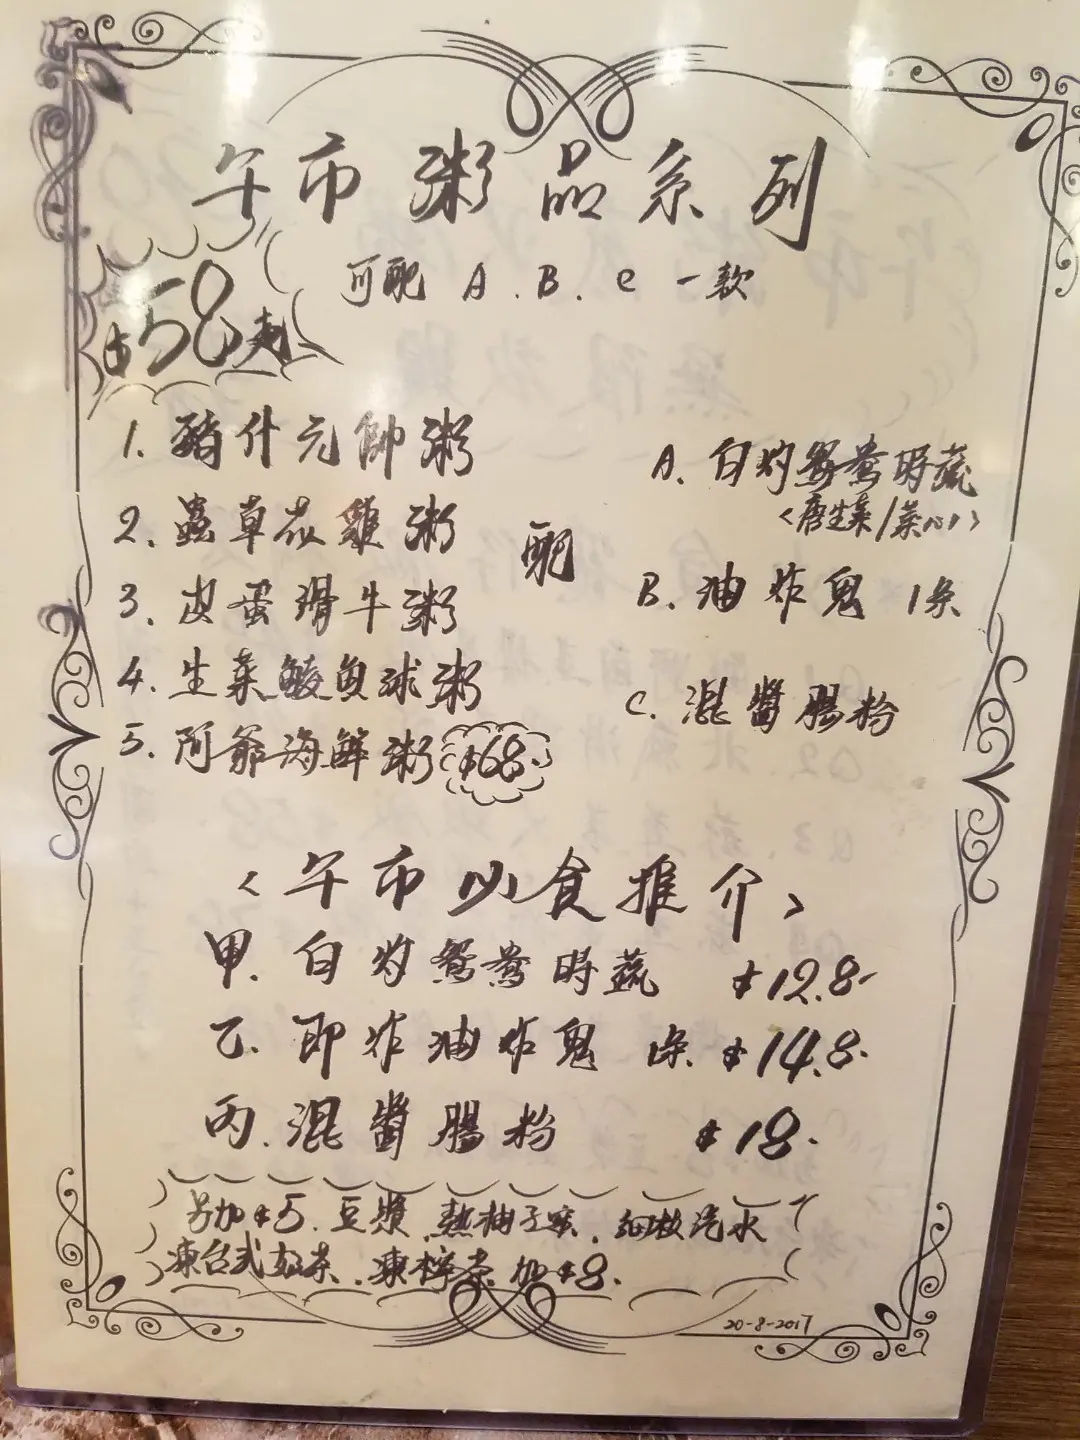 午市粥品系列
可配 A. B. C 一款
$58起
1. 豬什元帥粥
2. 蟲草花雞粥
3. 皮蛋滑牛粥
4. 生菜鯪魚球粥
5. 阿爺海鮮粥 $68.
配
A. 白灼鴛鴦時蔬
<唐生菜/菜心>
B. 油炸鬼 1条
C. 混醬腸粉
<午市小食推介>
甲. 白灼鴛鴦時蔬 $12.8.
乙. 即炸油炸鬼 1条. $14.8.
丙. 混醬腸粉 $18.
另加$5. 豆漿, 熱柚子蜜, 細枝汽水
凍台式奶茶, 凍檸茶 加$8.
20-8-2017